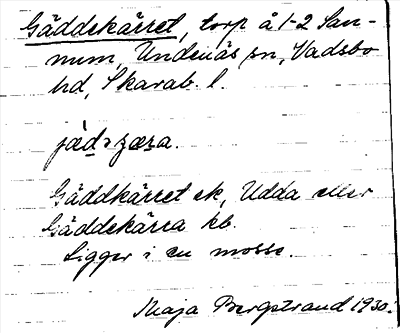 Gäddekärret, torp å 1-2 San-
num, Undenäs sn, Vadsbo
hd, Skarab. l.
jädəzæra.
Gäddkärret ek, Udda eller
Gäddekärra kb.
Ligger i en mosse.
Maja Bergstrand 1930.